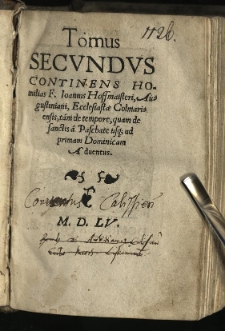 1126.
Tomus
SECVNDVS
CONTINENS HO-
milias F. Ioannis Hoffmaisteri, Au-
gustiniani, Ecclesiastæ Colmari-
ensis, tàm de tempore, quam de
sanctis à Paschate usq; ad
primam Dominicam
Aduentus.
Conuentus
M. D. LV.